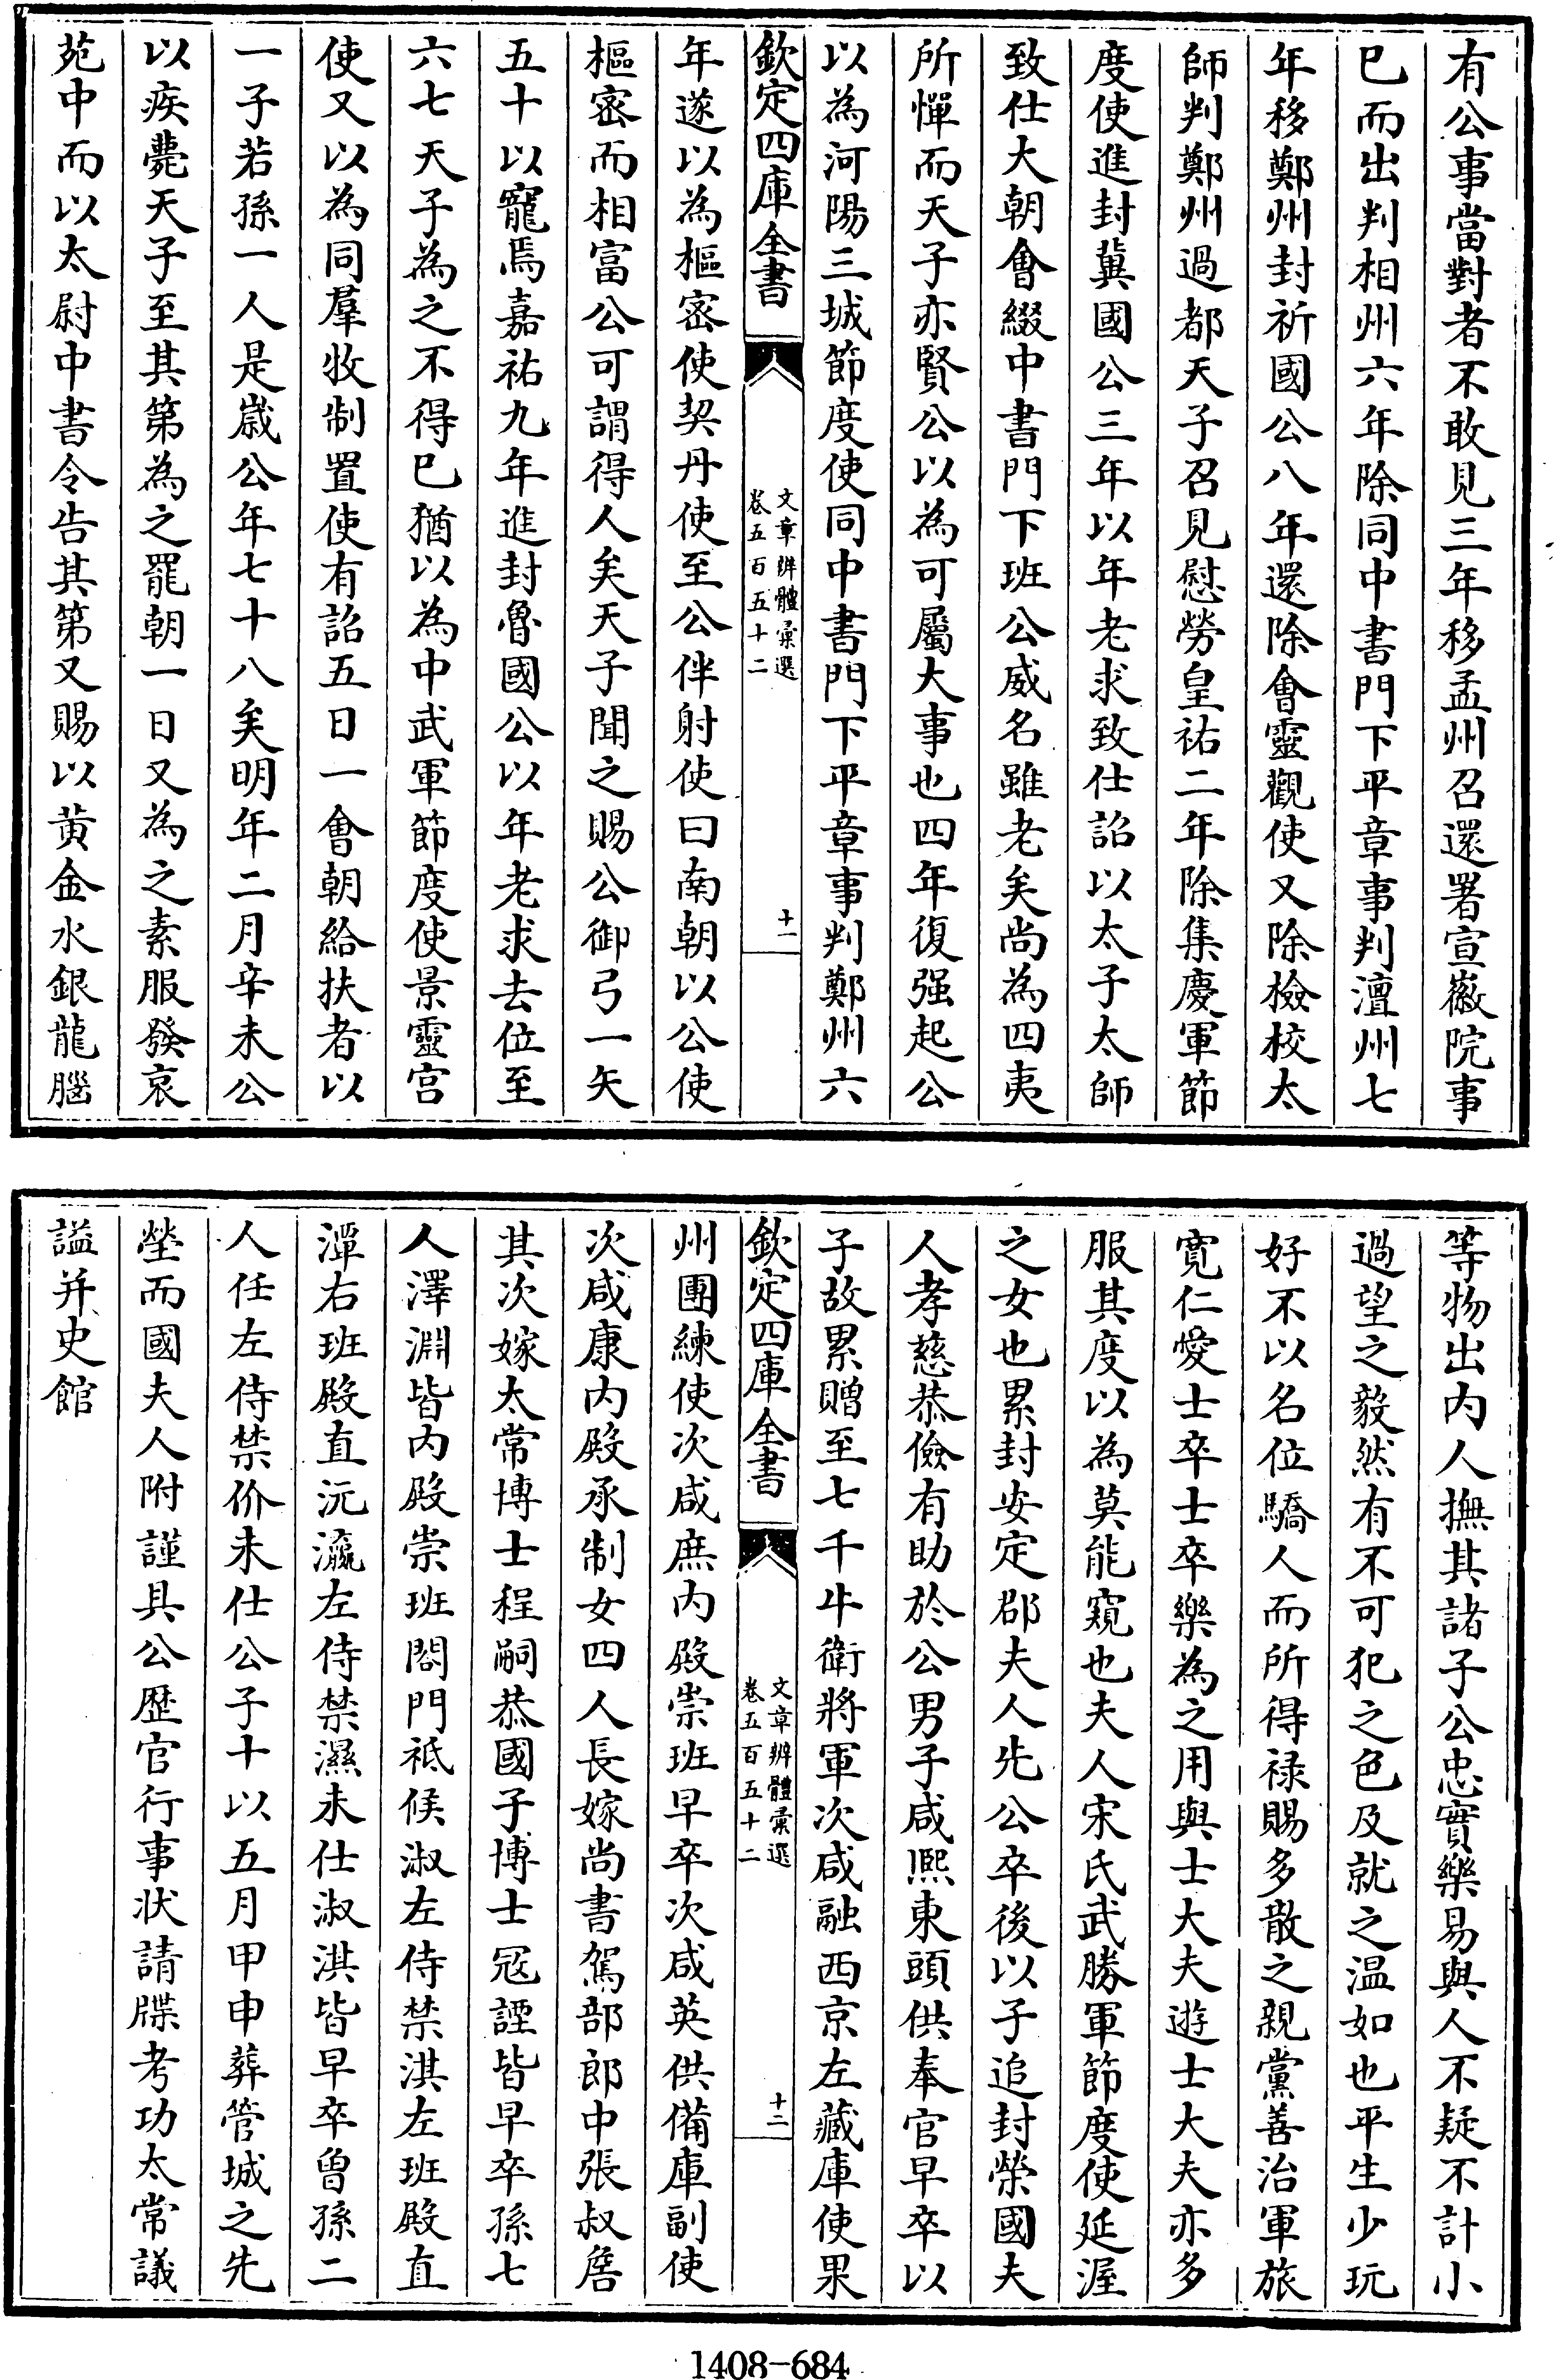 有公事當對者不敢見三年移孟州召還署宣徽院事
已而出判相州六年除同中書門下平章事判澶州七
年移鄭州封祈國公八年還除會靈觀使又除檢校太
師判鄭州過都天子召見慰勞皇祐二年除集慶軍節
度使進封冀國公三年以年老求致仕詔以太子太師
致仕大朝會綴中書門下班公威名雖老矣尚為四夷
所憚而天子亦賢公以為可屬大事也四年復强起公
以為河陽三城節度使同中書門下平章事判鄭州六
欽定四庫全書
文章辨體彙選
卷五百五十二
十一
年遂以為樞密使契丹使至公伴射使曰南朝以公使
樞密而相富公可謂得人矣天子聞之賜公御弓一矢
五十以寵焉嘉祐九年進封魯國公以年老求去位至
六七天子為之不得已猶以為中武軍節度使景靈宫
使又以為同羣牧制置使有詔五日一會朝給扶者以
一子若孫一人是歳公年七十八矣明年二月辛未公
以疾薨天子至其第為之罷朝一日又為之素服發哀
苑中而以太尉中書令告其第又賜以黄金水銀龍腦
等物出内人撫其諸子公忠實樂易與人不疑不計小
過望之毅然有不可犯之色及就之温如也平生少玩
好不以名位驕人而所得禄賜多散之親黨善治軍旅
寛仁愛士卒士卒樂為之用與士大夫遊士大夫亦多
服其度以為莫能窺也夫人宋氏武勝軍節度使延渥
之女也累封安定郡夫人先公卒後以子追封榮國夫
人孝慈恭儉有助於公男子咸熙東頭供奉官早卒以
子故累贈至七千牛衛將軍次咸融西京左藏庫使果
欽定四庫全書
文章辨體彙選
卷五百五十二
十二
州團練使次咸庶内殿崇班早卒次咸英供備庫副使
次咸康内殿承制女四人長嫁尚書駕部郎中張叔詹
其次嫁太常博士程嗣恭國子博士冦諲皆早卒孫七
人澤淵皆内殿崇班閤門祗候淑左侍禁淇左班殿直
潭右班殿直沅瀛左侍禁濕未仕淑淇皆早卒曽孫二
人任左侍禁价未仕公子十以五月甲申葬管城之先
塋而國夫人附謹具公歴官行事状請牒考功太常議
謚并史館
1408-684